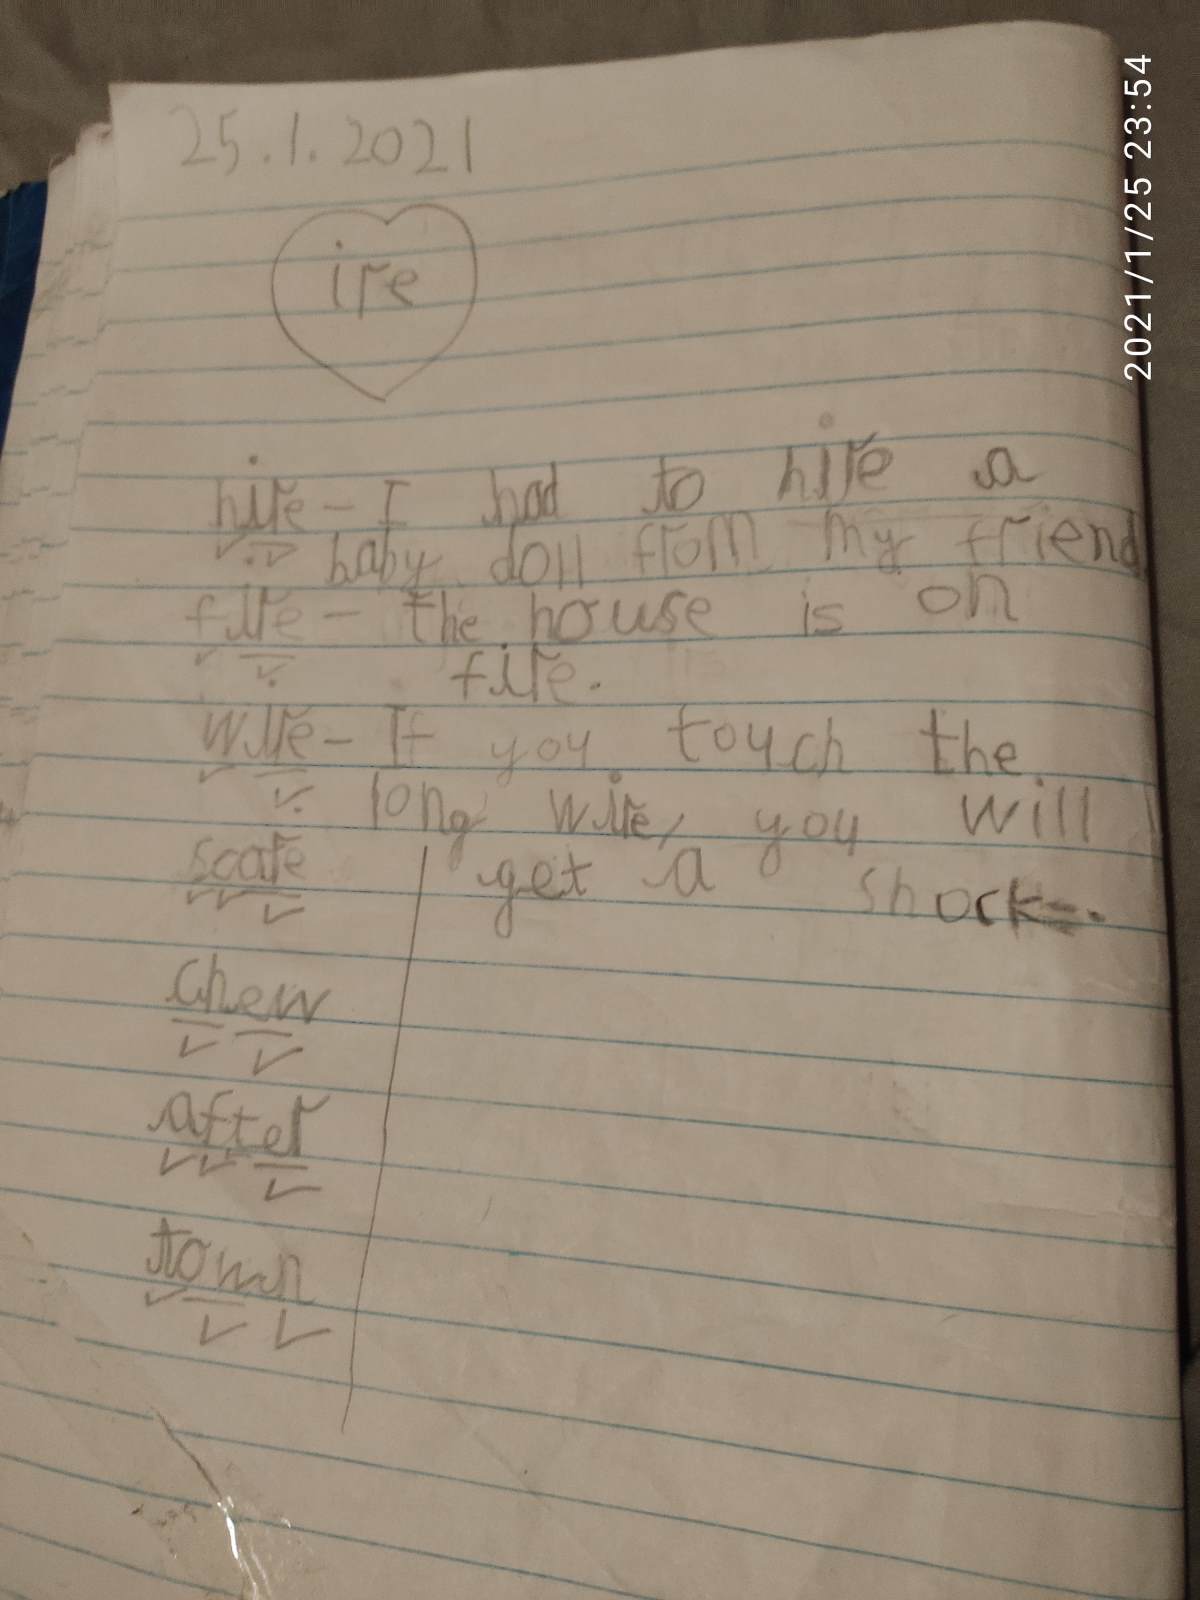 25.1.2021
ire
hire - I had to hire a
baby doll from my friend
fire - the house is on
fire.
wire - If you touch the
long wire, you will
scare get a shock.
chew
after
town
2021/1/25 23:54